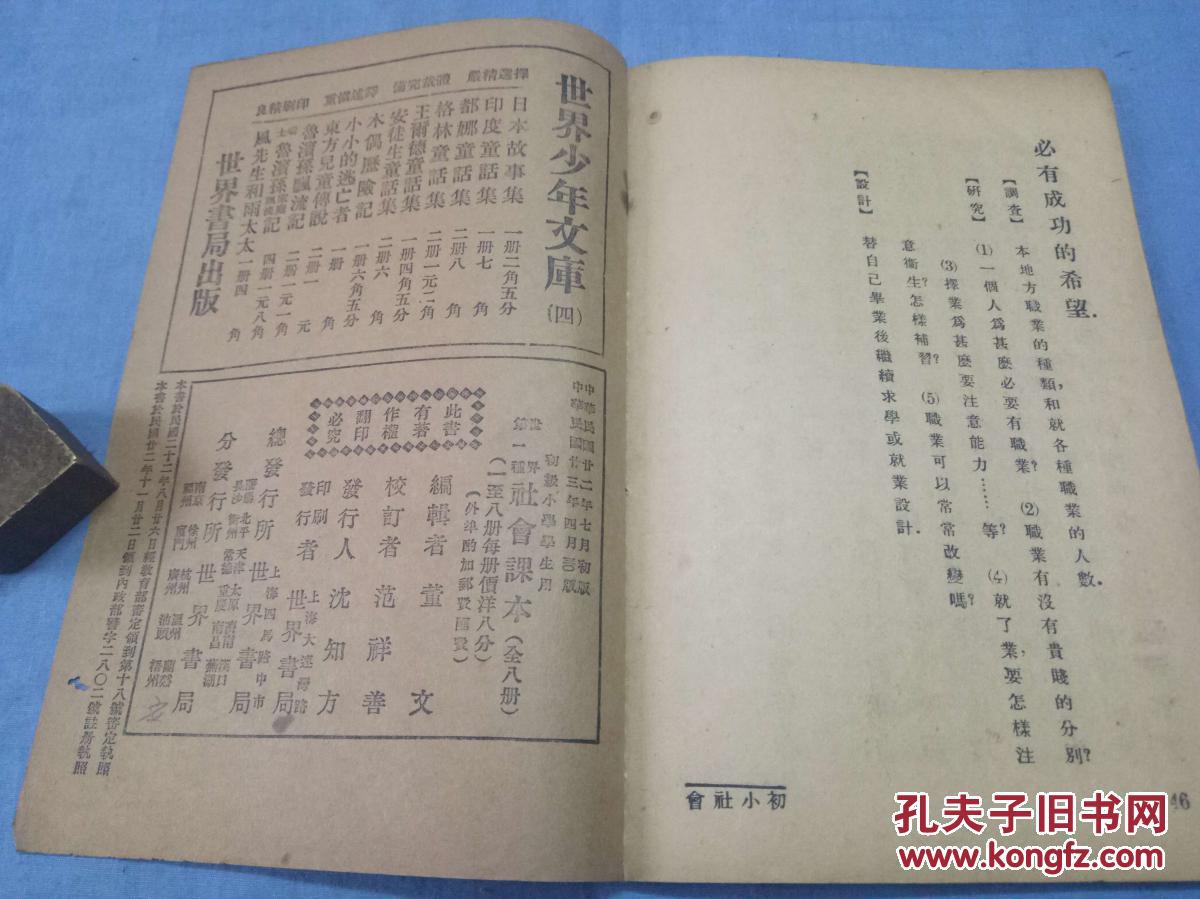 必有成功的希望．
【調查】 本地方職業的種類，和就各種職業的人數．
【研究】 (1)一個人爲甚麽必要有職業？ (2)職業有沒有貴賤的分別？
(3)擇業爲甚麽要注意能力……等？ (4)就了業，要怎樣注
意衞生？怎樣補習？ (5)職業可以常常改變嗎？
【設計】 替自己畢業後繼續求學或就業設計．
初小社會
46
選擇精嚴 體裁完備 譯述愼重 印刷精良
世界少年文庫（四）
日本故事集 一册二角五分
印度童話集 一册七角
都娜童話集 二册八角
格林童話集 二册一元二角
王爾德童話集 一册四角五分
安徒生童話集 二册六角
木偶歷險記 一册六角五分
小小的逃亡者 一册
東方兒童傳說 二册一元
魯濱孫飄流記 二册一元一角
魯濱孫家庭飄流記 四册一元八角
風先生和雨太太 一册四角
世界書局出版
中華民國廿二年七月初版
中華民國廿三年四月
初級小學學生用
世界第一種 社會課本（全八册）
（一至八册每册價洋八分）
（外埠酌加郵費匯費）
此書有著作權翻印必究
編輯者 董文
校訂者 范祥善
發行人 沈知方
印刷發行者 上海大連灣路 世界書局
總發行所 上海四馬路中市 世界書局
分發行所 世界書局
北平 天津 太原 濟南 漢口
長沙 衡州 常德 重慶 南昌 蕪湖
南京 徐州 杭州 溫州 蘭谿
廈門 廣州 汕頭 梧州
本書於民國二十二年八月廿六日經教育部審定領到第十八號審定執照
本書於民國廿二年十一月廿二日領到內政部警字二八〇二號註册執照
孔夫子旧书网
www.kongfz.com